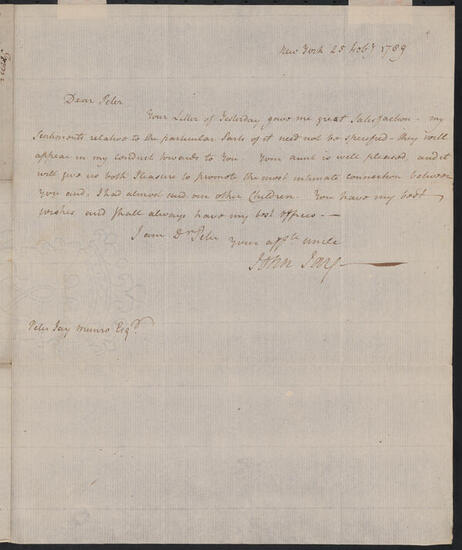 New York 25 1789
Dear Peter
Your Letter of Yesterday gave me great Satisfaction - my
Sentiments relative to the particular Parts of it need not be specified - they will
appear in my conduct towards to You. Your aunt is well pleased, and it
will give us both Pleasure to promote the most intimate connection between
You and, I had almost said our other Children. You have my best
wishes and shall always have my best offices - -
I am Dr Peter your affte uncle
John Jay
Peter Jay Munro Esqr